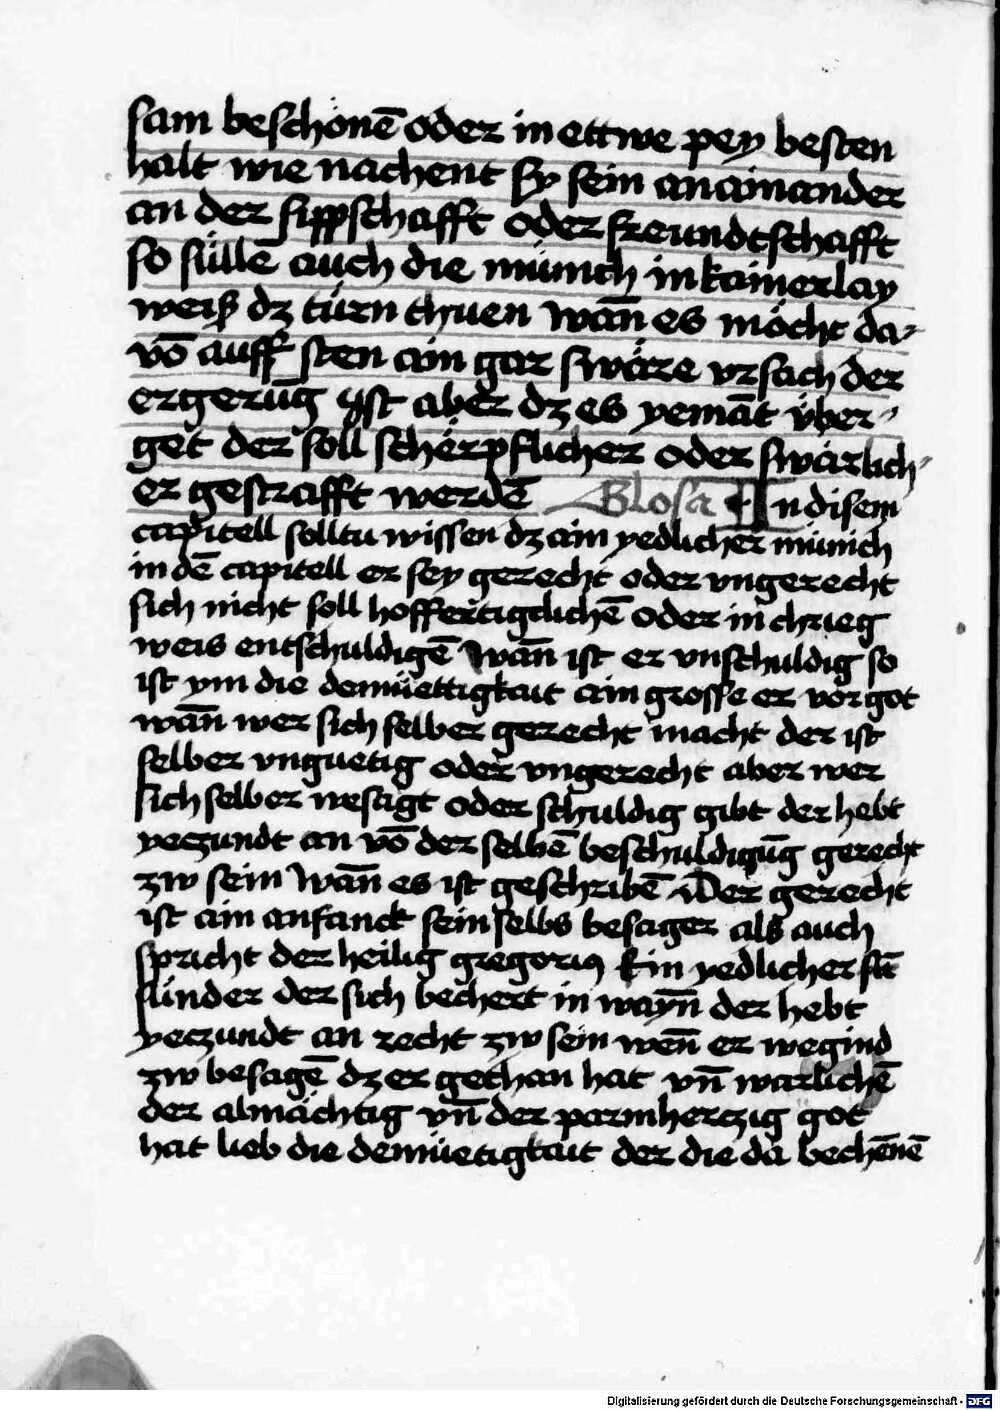 sam beschönē oder in ettwe pey besten
halt wie nachent sy sein an ainander
an der sippschafft oder freundtschafft
so süllē auch die münich in kainerlay
weiß dz türn thuen wān es möcht da-
vō auff sten ain gar swäre vrsach der
ergerūg yst aber dz es yemāt über-
get der soll schërpflicher oder swärlich-
er gestrafft werdē Glosa In disem
capitell solltu wissen dz ain yedlicher münich
in dē capitell er sey gerecht oder vngerecht
sich nicht soll hoffertigclichē oder in chrieg
weis entschuldigē wān ist er vnschuldig so
ist ym die demüettigkait ain grosse er vor got
wān wer sich selber gerecht macht der ist
selber vnguetig oder vngerecht aber wer
sich selber wesagt oder schuldig gibt der hebt
yeczundt an vō der selbē beschuldigūg gerecht
zw sein wān es ist geschribē Der gerecht
ist ain anfanck sein selbs besager als auch
spricht der heilig gregorius Ein yedlicher
sünder der sich bechert in wayn̄ der hebt
yeczundt an recht zw sein wen̄ er wegind
zw besagē dz er gethan hat vn̄ warlichē
der almächtig vn̄ der parmherczig got
hat lieb die demüetigkait der die da bechēnē
Digitalisierung gefördert durch die Deutsche Forschungsgemeinschaft - DFG